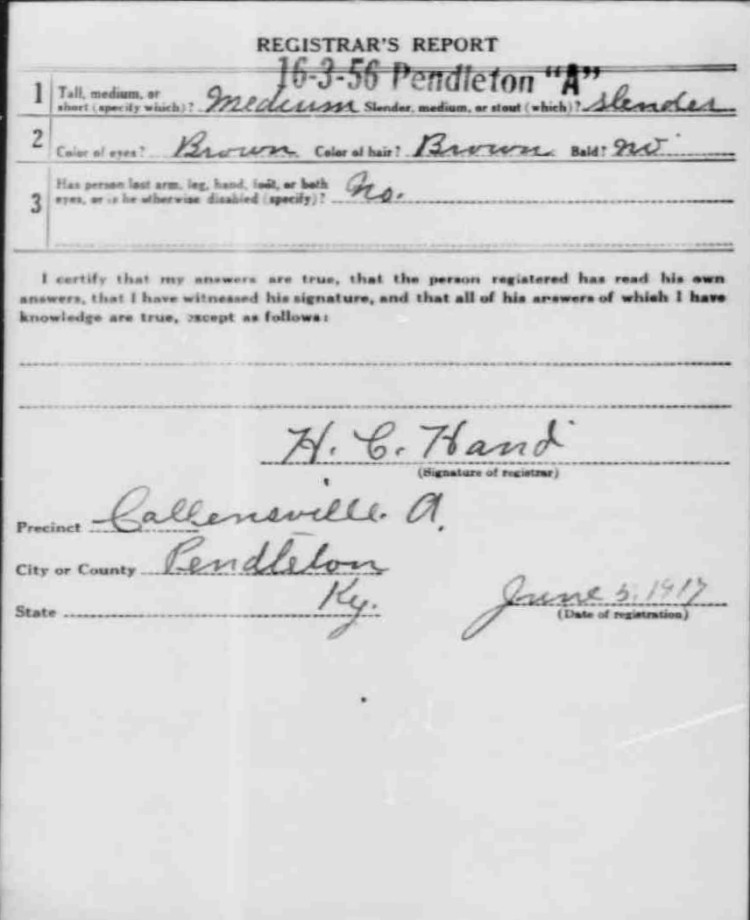 REGISTRAR'S REPORT
16-3-56 Pendleton "A"
1 Tall, medium, or short (specify which)? Medium Slender, medium, or stout (which)? Slender
2 Color of eyes? Brown Color of hair? Brown Bald? No
3 Has person lost arm, leg, hand, foot, or both
eyes, or is he otherwise disabled (specify)? No.
I certify that my answers are true, that the person registered has read his own
answers, that I have witnessed his signature, and that all of his answers of which I have
knowledge are true, except as follows:
H. C. Hand
(Signature of registrar)
Precinct Callensville. A.
City or County Pendleton
State Ky. June 5, 1917
(Date of registration)